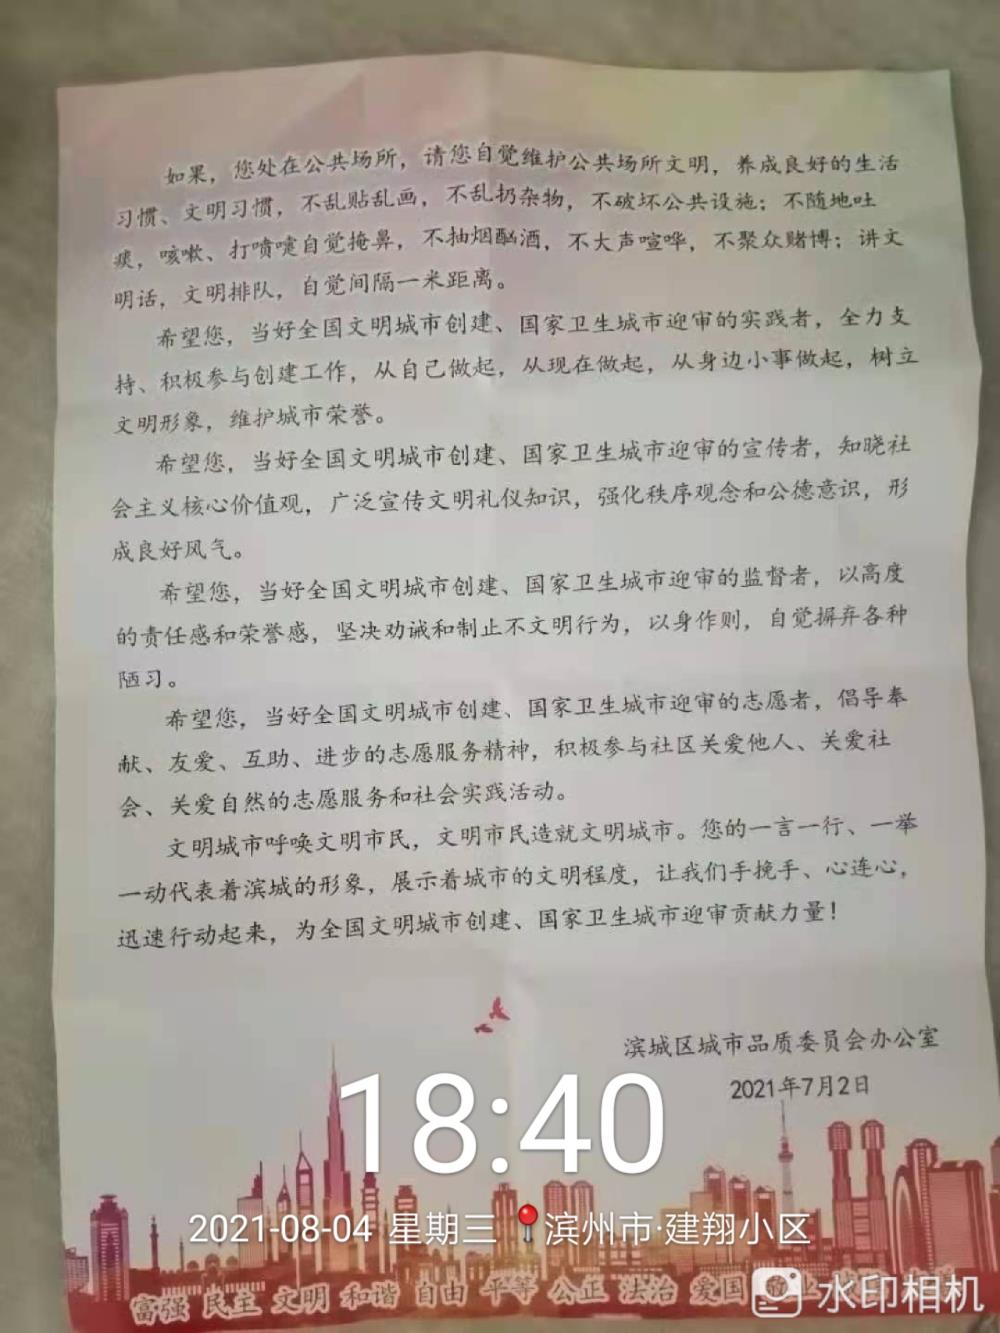 如果，您处在公共场所，请您自觉维护公共场所文明，养成良好的生活
习惯、文明习惯，不乱贴乱画，不乱扔杂物，不破坏公共设施；不随地吐
痰，咳嗽、打喷嚏自觉掩鼻，不抽烟酗酒，不大声喧哗，不聚众赌博；讲文
明话，文明排队，自觉间隔一米距离。
希望您，当好全国文明城市创建、国家卫生城市迎审的实践者，全力支
持、积极参与创建工作，从自己做起，从现在做起，从身边小事做起，树立
文明形象，维护城市荣誉。
希望您，当好全国文明城市创建、国家卫生城市迎审的宣传者，知晓社
会主义核心价值观，广泛宣传文明礼仪知识，强化秩序观念和公德意识，形
成良好风气。
希望您，当好全国文明城市创建、国家卫生城市迎审的监督者，以高度
的责任感和荣誉感，坚决劝诫和制止不文明行为，以身作则，自觉摒弃各种
陋习。
希望您，当好全国文明城市创建、国家卫生城市迎审的志愿者，倡导奉
献、友爱、互助、进步的志愿服务精神，积极参与社区关爱他人、关爱社
会、关爱自然的志愿服务和社会实践活动。
文明城市呼唤文明市民，文明市民造就文明城市。您的一言一行、一举
一动代表着滨城的形象，展示着城市的文明程度，让我们手挽手、心连心，
迅速行动起来，为全国文明城市创建、国家卫生城市迎审贡献力量！
滨城区城市品质委员会办公室
2021年7月2日
18:40
2021-08-04 星期三 滨州市·建翔小区
富强 民主 文明 和谐 自由 平等 公正 法治 爱国
水印相机